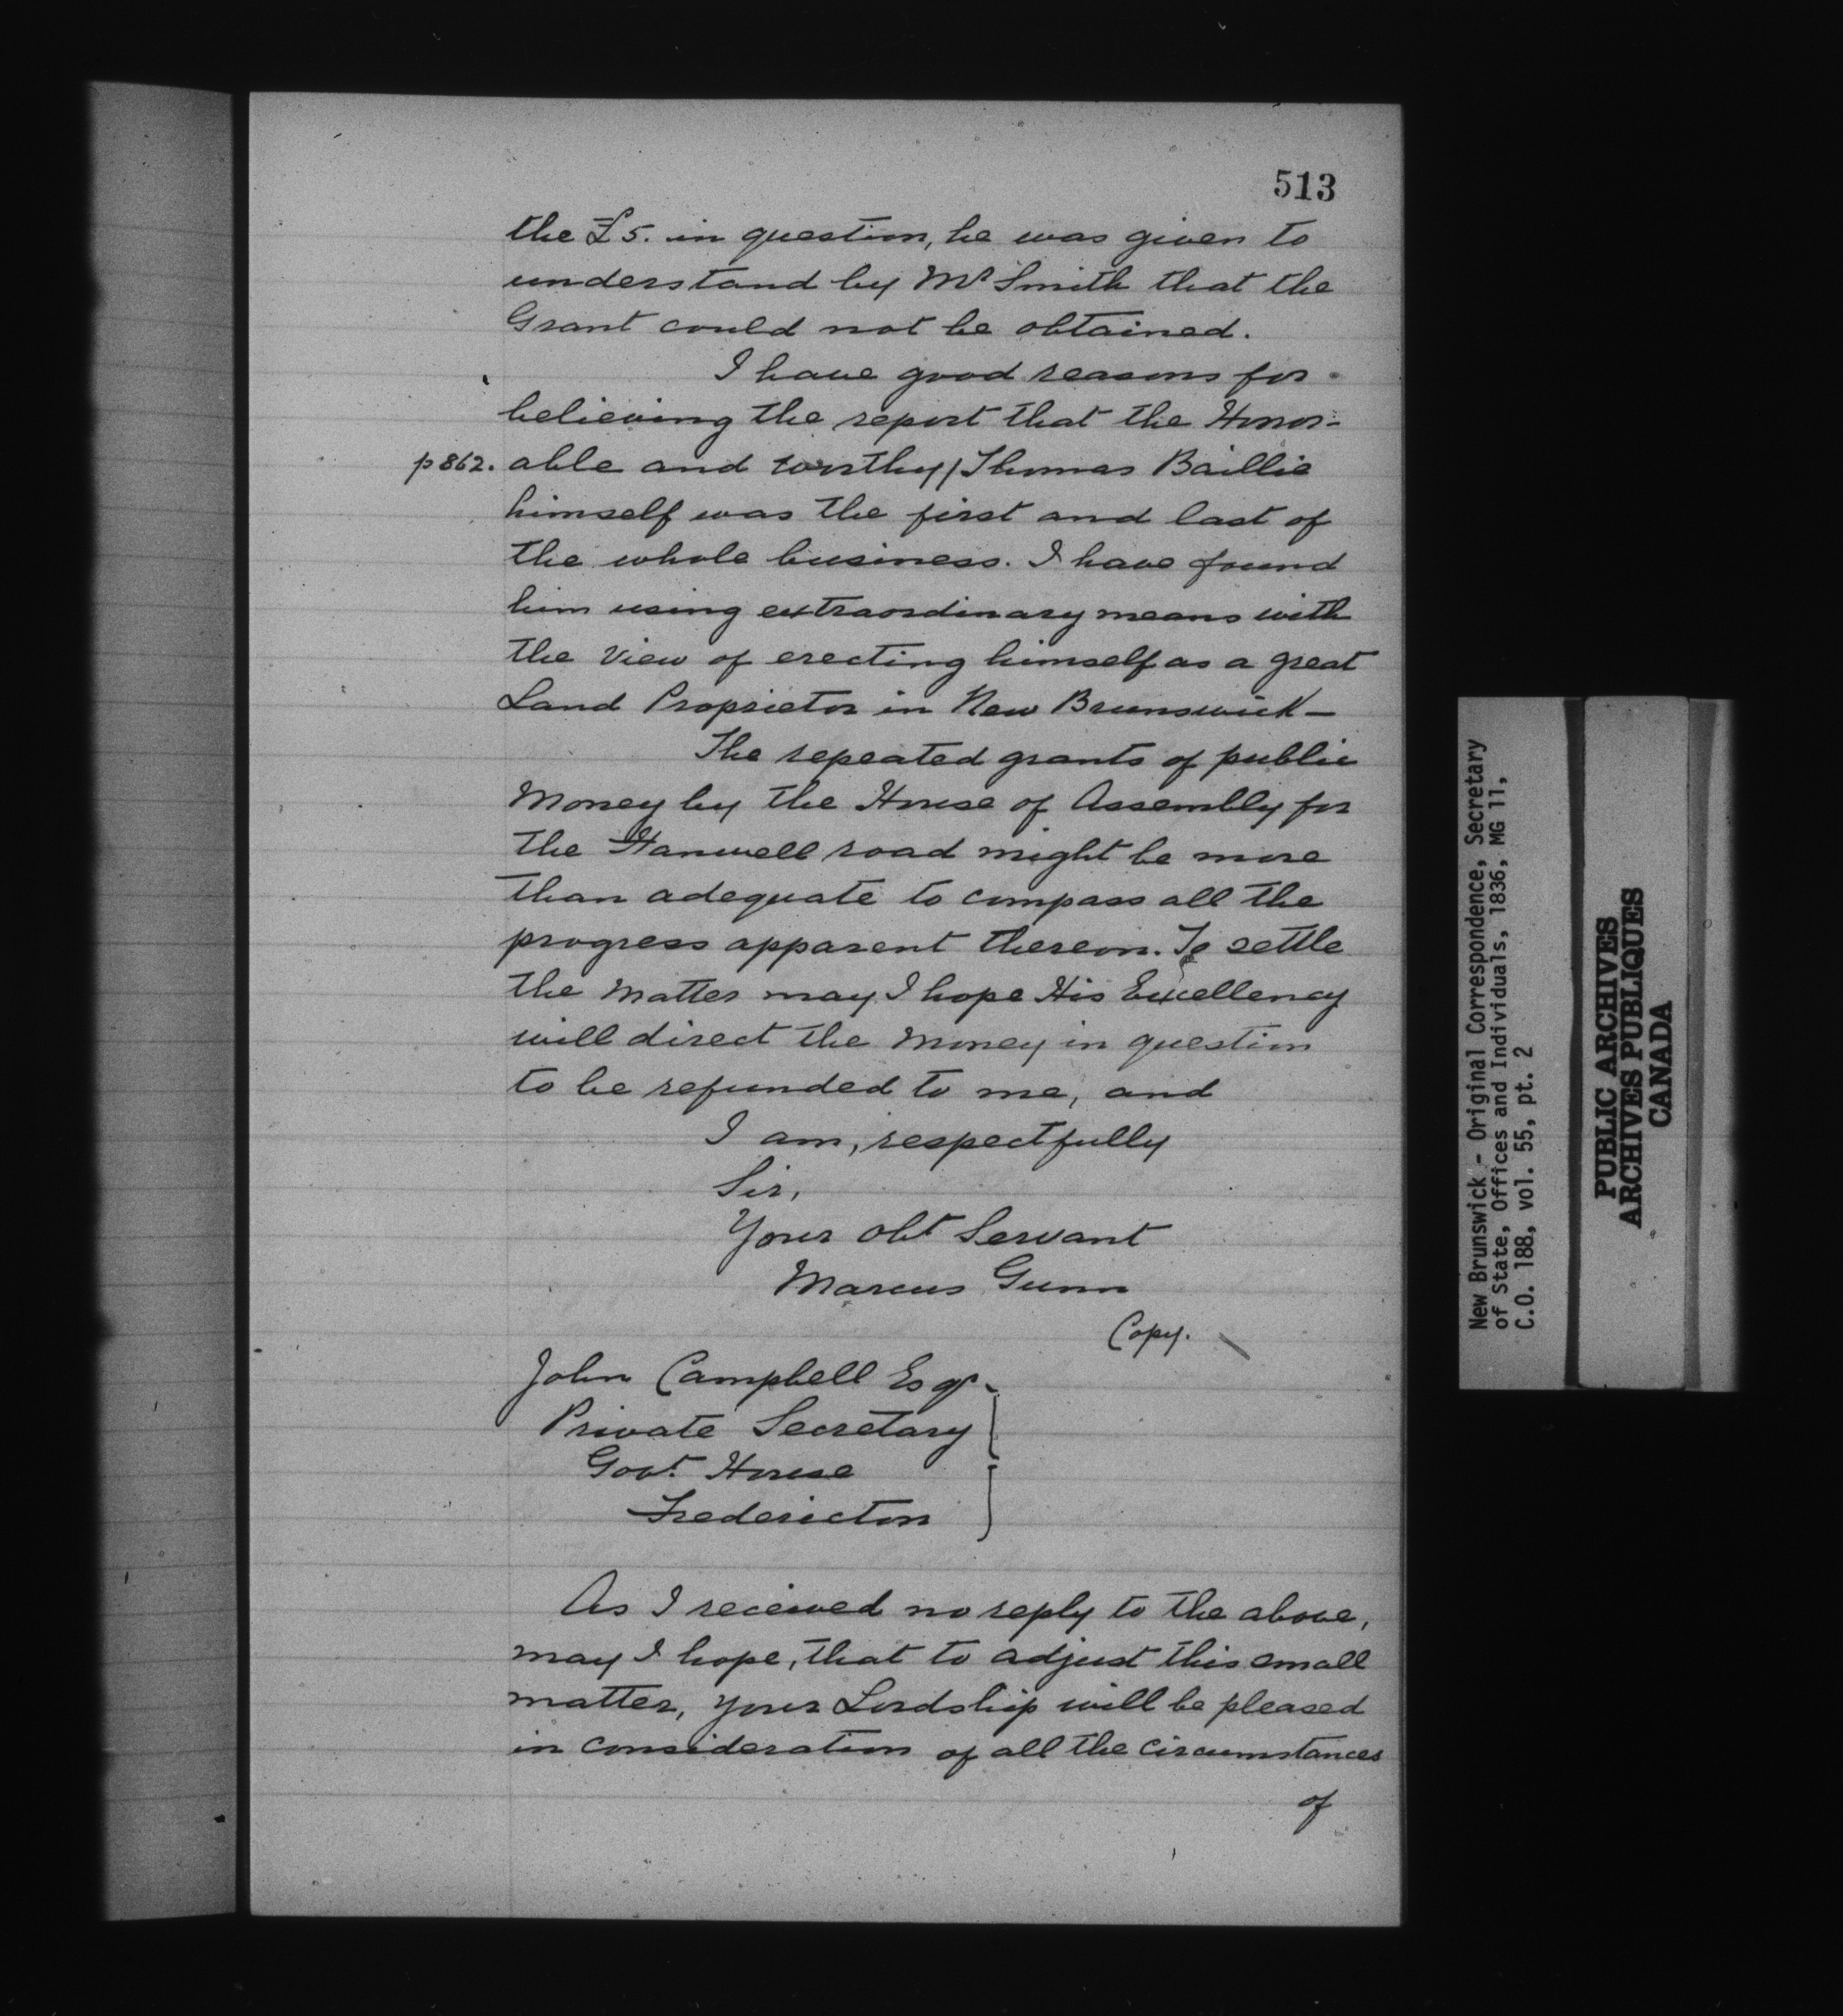 513
the £5. in question, he was given to
understand by Mr Smith that the
Grant could not be obtained.
I have good reasons for
believing the report that the Honor-
p 862. able and worthy / Thomas Baillie
himself was the first and last of
the whole business. I have found
him using extraordinary means with
the view of erecting himself as a great
Land Proprietor in New Brunswick—
The repeated grants of public
Money by the House of Assembly for
the Hanwell road might be more
than adequate to compass all the
progress apparent thereon. To settle
the matter may I hope His Excellency
will direct the money in question
to be refunded to me, and
I am, respectfully
Sir,
Your obt Servant
Marcus Gunn
Copy.
John Campbell Esqr.
Private Secretary
Govt House
Fredericton
As I received no reply to the above,
may I hope, that to adjust this small
matter, your Lordship will be pleased
in consideration of all the circumstances
of
New Brunswick - Original Correspondence, Secretary
of State, Offices and Individuals, 1836, MG 11,
C.O. 188, vol. 55, pt. 2
PUBLIC ARCHIVES
ARCHIVES PUBLIQUES
CANADA